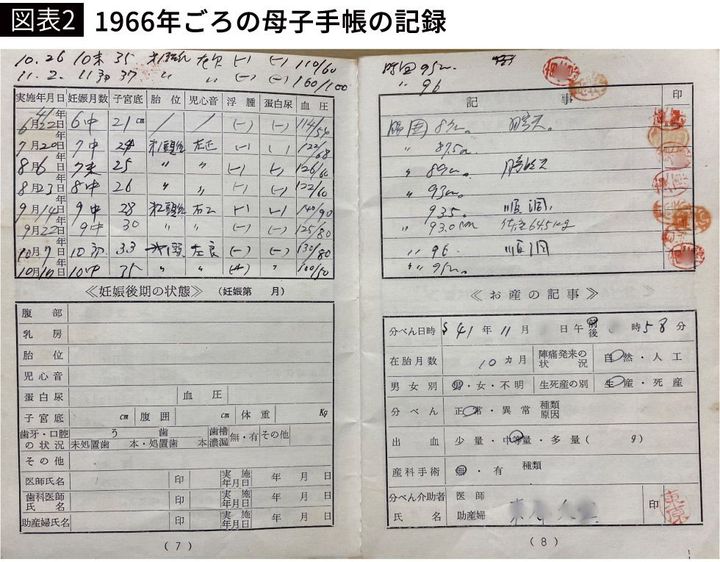 図表2 1966年ごろの母子手帳の記録
10.26 10末 35 〃 (-) (-) 110/60
11.2. 11初 37 〃 〃 (-) (-) 160/100
実施年月日 妊娠月数 子宮底 胎位 児心音 浮腫 蛋白尿 血圧
41年6月22日 6中 21cm / / (-) (-) 114/54
年7月20日 7中 24 (-) (-) 122/68
年8月6日 7末 25 〃 〃 (-) (-) 126/60
年8月23日 8中 26 〃 〃 (-) (-) 122/60
年9月14日 9中 28 (-) (-) 140/90
年9月22日 9中 30 (-) (-) 125/80
年10月7日 10初 33 (-) (-) 130/80
10月 日 10中 35 〃 〃 〃 100/50
≪妊娠後期の状態≫ (妊娠第 月)
腹部
乳房
胎位
児心音
蛋白尿 血圧
子宮底 cm 腹囲 cm 体重 Kg
歯牙・口腔の状況 う歯 未処置歯 本・処置歯 本 歯槽膿漏 無・有 その他
その他
医師氏名 印 実施年月日 年 月 日
歯科医師氏名 印 実施年月日 年 月 日
助産婦氏名 印 実施年月日 年 月 日
(7)
腹囲 95cm.
〃 96
記事 印
腹囲 83cm.
〃 87.5cm
〃 89cm.
〃 93cm.
〃 93.5. 順調.
〃 93.0cm 体重64.5kg
〃 96 順調
〃 95cm.
≪お産の記事≫
分べん日時 S41年11月 日午前後 時58分
在胎月数 10カ月 陣痛発来の状況 自然・人工
男女別 男・女・不明 生死産の別 生産・死産
分べん 正常・異常 種類 原因
出血 少量・中等量・多量( g)
産科手術 無・有 種類
分べん介助者氏名 医師 助産婦 印
(8)